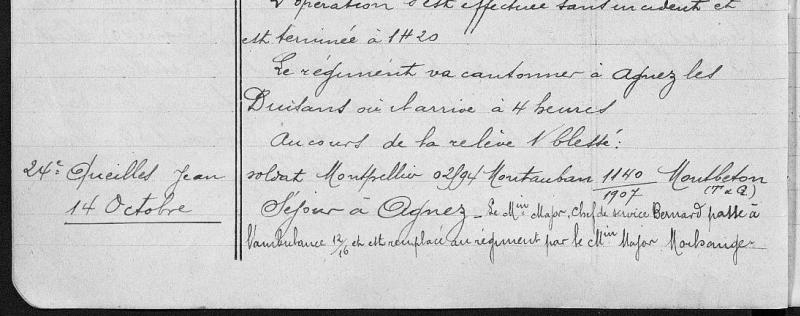 L'opération s'est effectuée sans incident et
est terminée à 1H20
Le régiment va cantonner à Agnez les
Duisans où il arrive à 4 heures
Au cours de la relève 1 blessé:
24e Queilles Jean soldat Montpellier 02/94 Montauban 1140/1907 Montbeton
(T & G)
14 Octobre Séjour à Agnez - Le Min Major, Chef de service Bernard passe à
l'ambulance 12/16 et est remplacé au régiment par le Min Major Morhange-